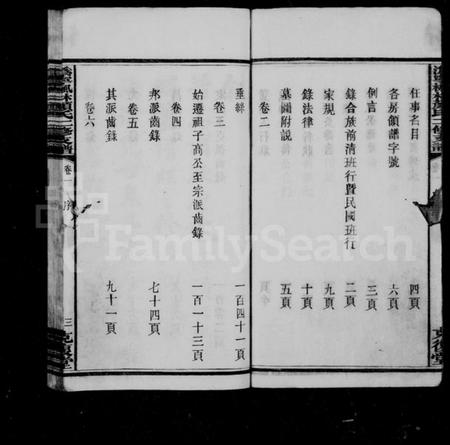 任事名目 四頁
各房領譜字號 六頁
例言 三頁
錄合族前清班行暨民國班行 二頁
家規 九頁
錄法律 十頁
墓圖附說 五頁
卷二行錄
垂絲 一百四十一頁
卷三
始遷祖子高公至宗派齒錄 一百一十三頁
卷四
邦派齒錄 七十四頁
卷五
其派齒錄 九十一頁
卷六
卷一 序 三 克復堂
FamilySearch